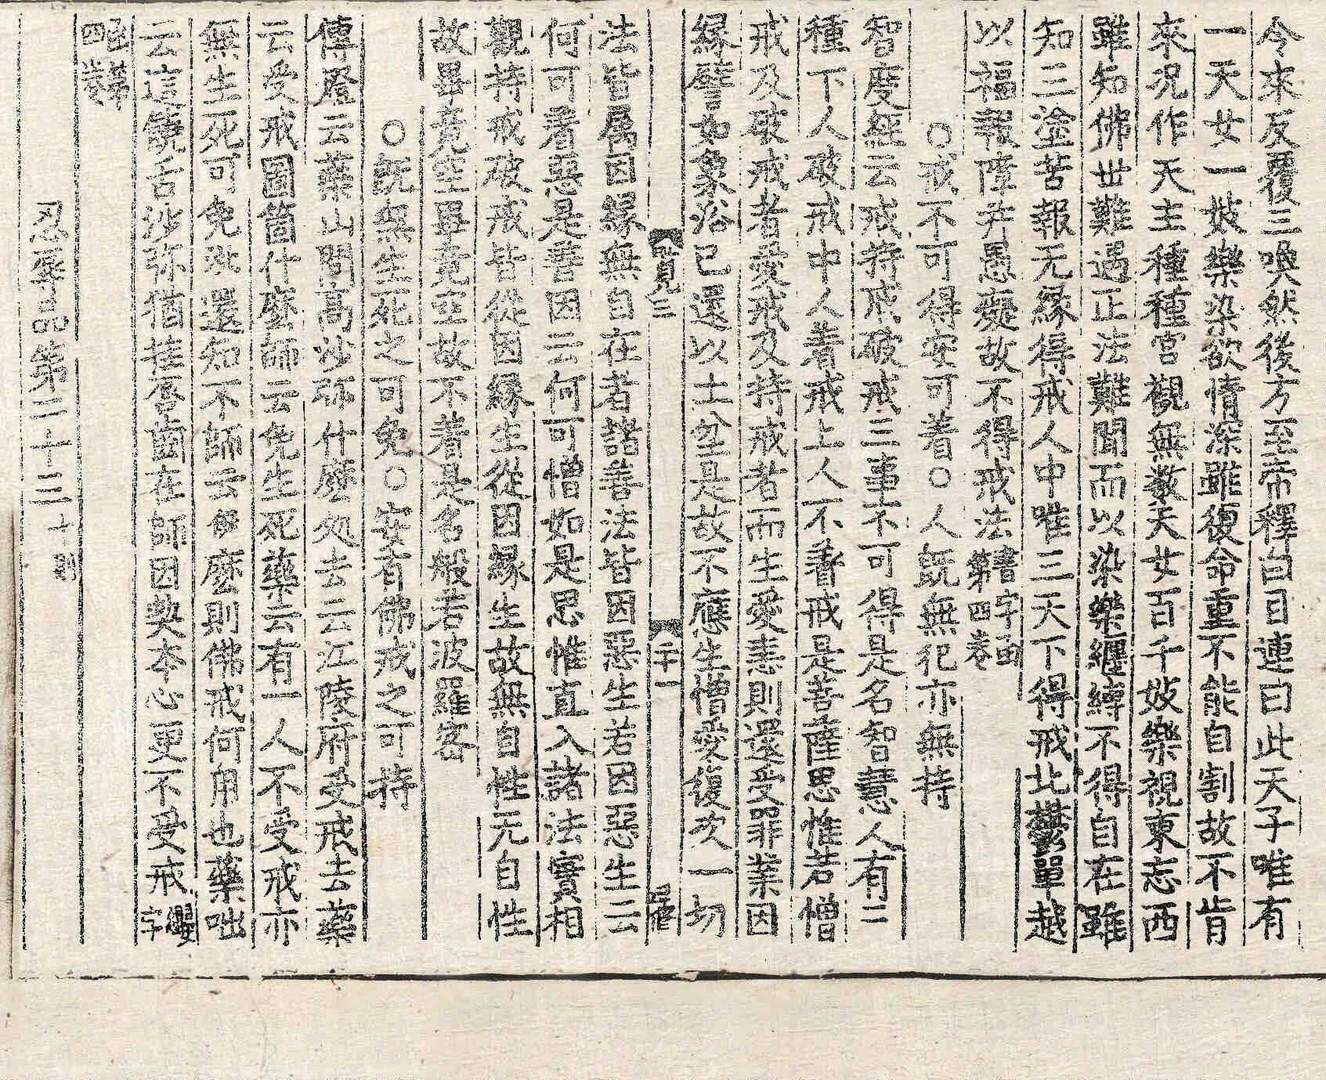 今來反覆三喚然後方至帝釋白目連曰此天子唯有
一天女一妓樂染欲情深雖復命重不能自割故不肯
來況作天主種種宮觀無數天女百千妓樂視東忘西
雖知佛世難遇正法難聞而以染樂纏縛不得自在雖
知三塗苦報无緣得戒人中唯三天下得戒北欝單越
以福報障并愚癡故不得戒法 書字函第四卷
○戒不可得安可着○人既無犯亦無持
智度經云戒持戒破戒三事不可得是名智慧人有三
種下人破戒中人着戒上人不着戒是菩薩思惟若憎
戒及破戒者愛戒及持戒者而生愛恚則還受罪業因
緣譬如象浴已還以土坌是故不應生憎愛復次一切
賢三 十一
法皆属因緣無自在者諸善法皆因惡生若因惡生云
何可着惡是善因云何可憎如是思惟直入諸法實相
觀持戒破戒皆從因緣生從因緣生故無自性无自性
故畢竟空畢竟空故不着是名般若波羅蜜
○既無生死之可免○安有佛戒之可持
傳燈云藥山問高沙弥什麼処去云江陵府受戒去藥
云受戒圖箇什麼師云免生死藥云有一人不受戒亦
無生死可免汝還知不師云恁麼則佛戒何用也藥咄
云這饒舌沙弥猶挂唇齒在師因契本心更不受戒 纓字
函第四卷
忍辱品第二十三 十則